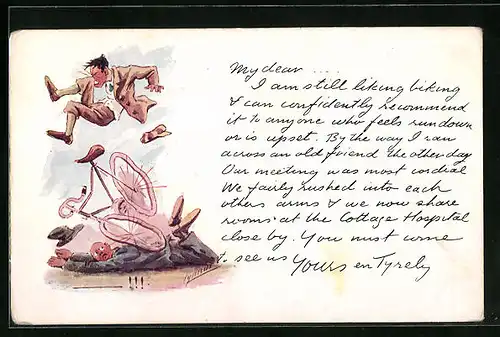 My dear ....
I am still liking biking
& can confidently recommend
it to anyone who feels run down
or is upset. By the way I ran
across an old friend the other day
Our meeting was most cordial
We fairly rushed into each
others arms & we now share
rooms at the Cottage Hospital
close by. You must come
to see us Yours en Tyrely
______ !!!